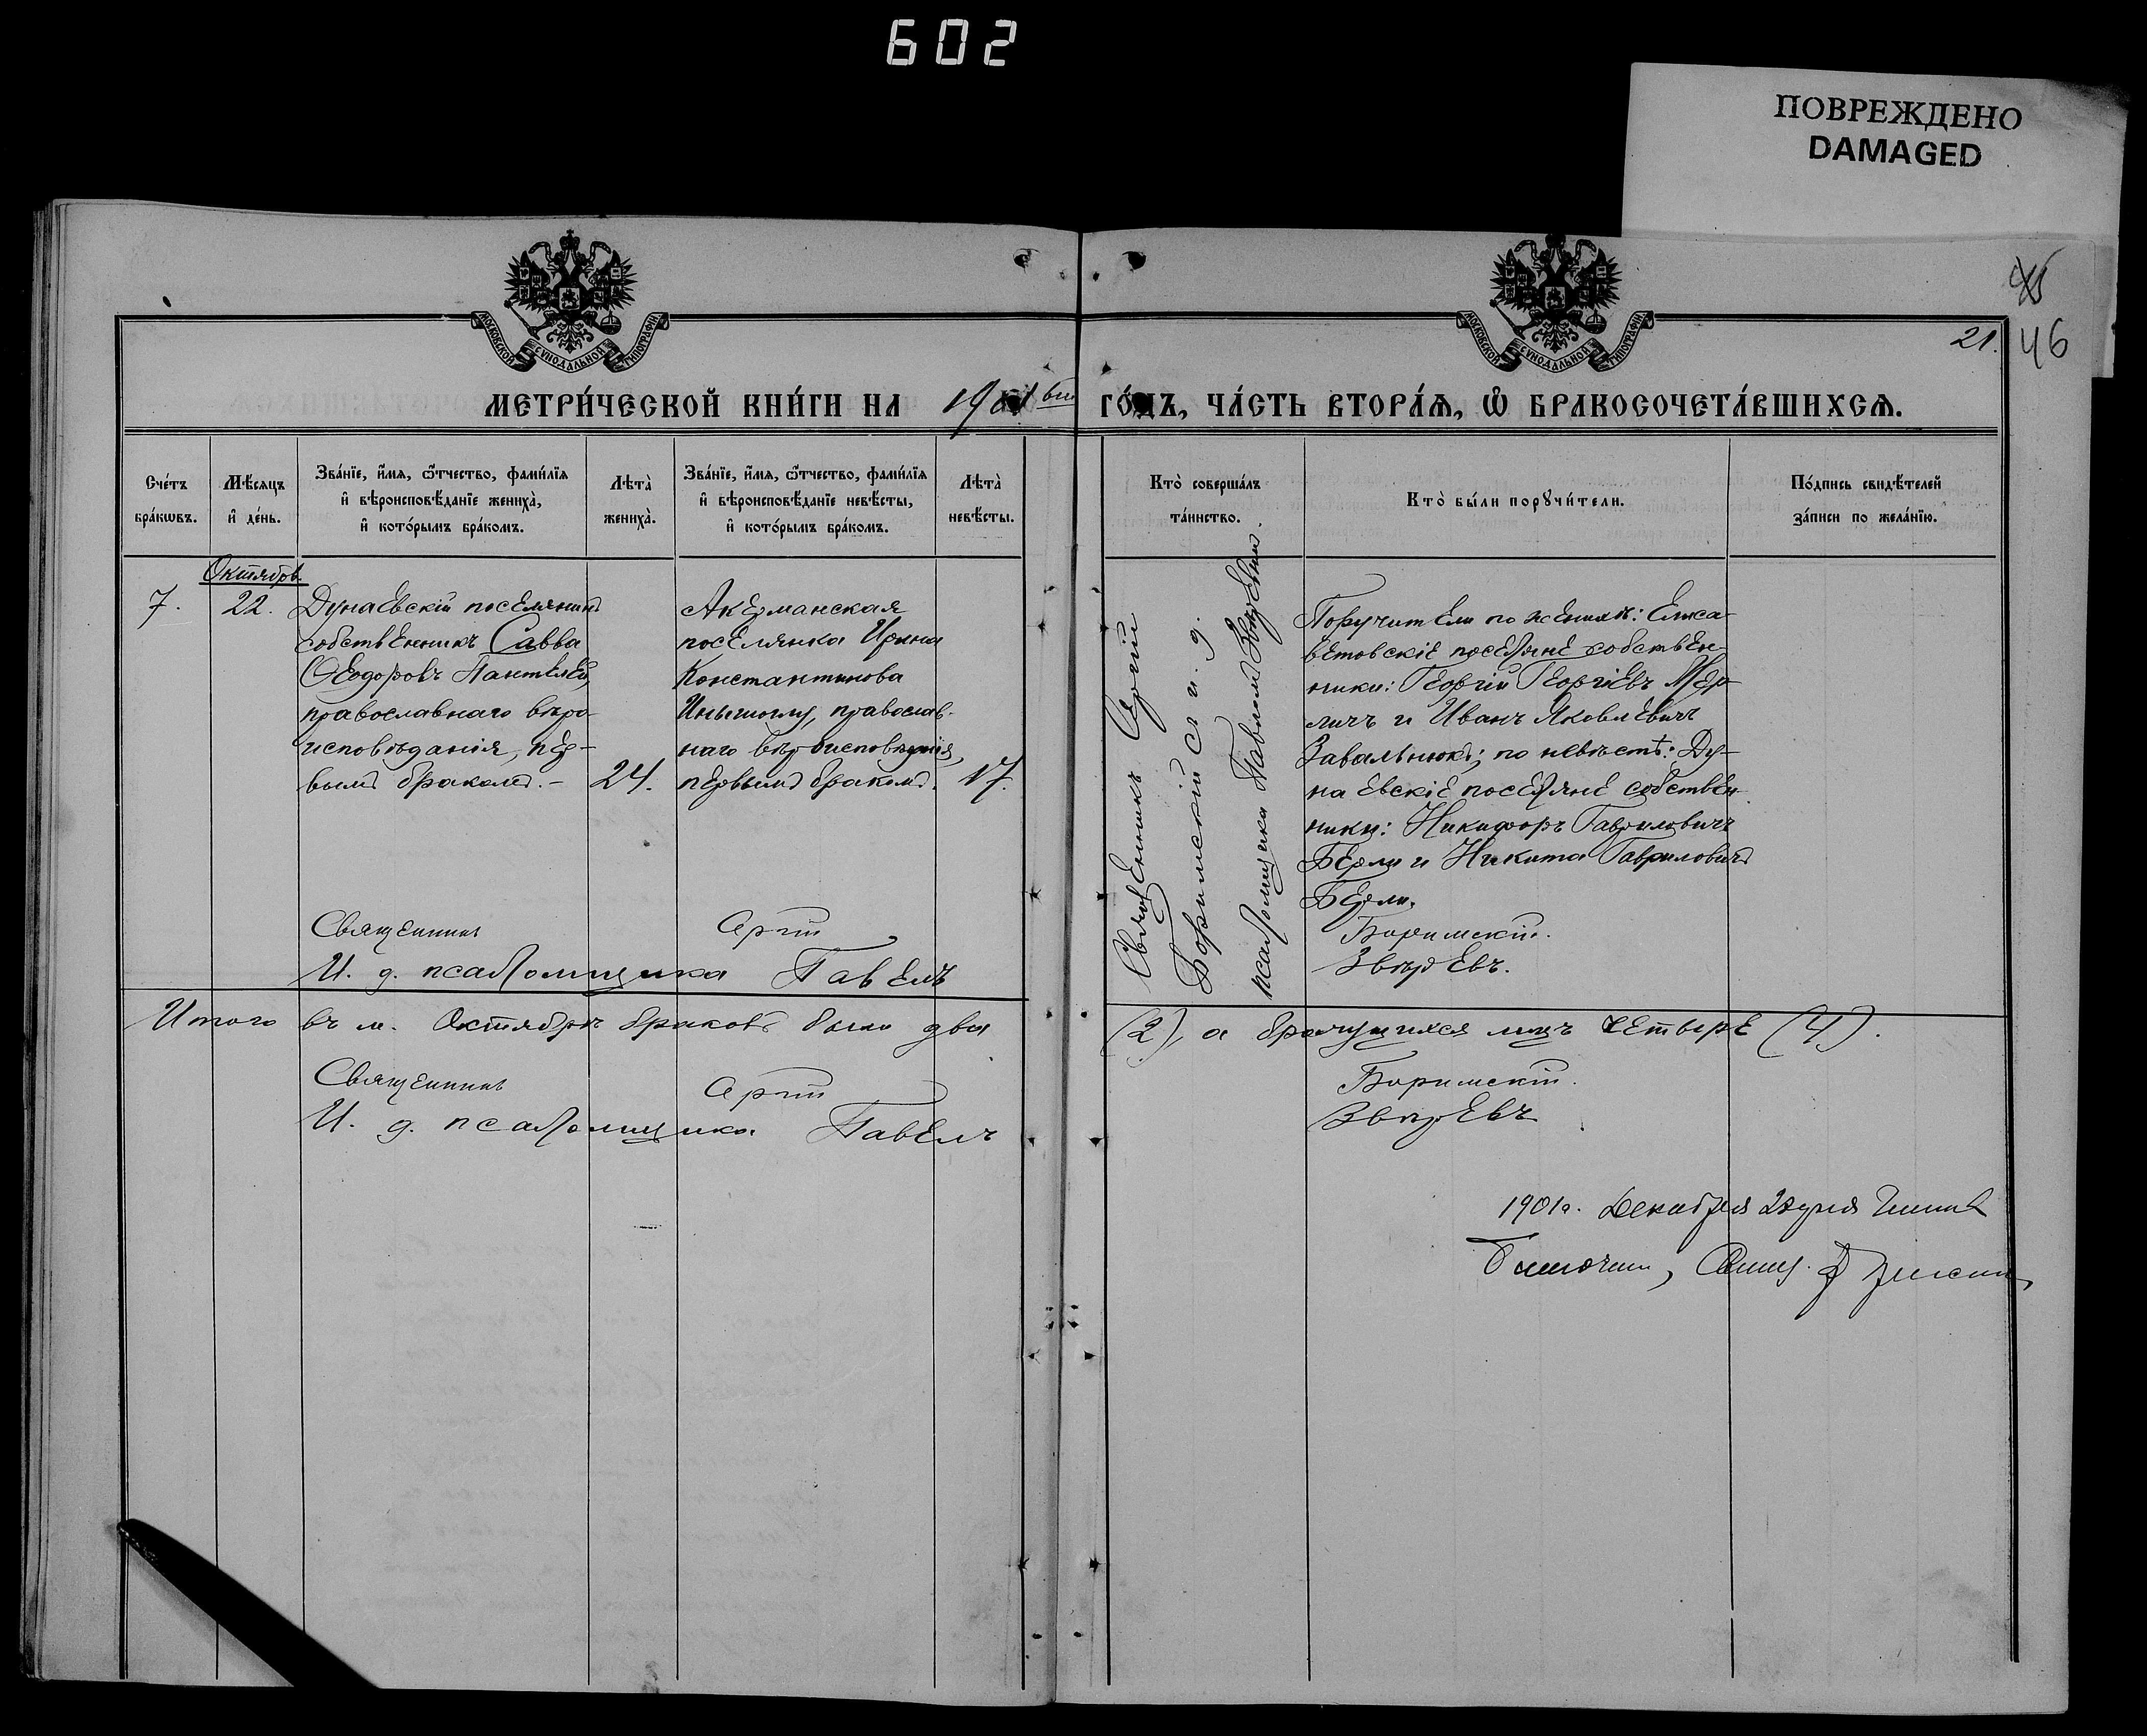 602
ПОВРЕЖДЕНО
DAMAGED
45
46
21.
МОСКОВСКОЙ СУНОДАЛЬНОЙ ТИПОГРАФІИ
МОСКОВСКОЙ СУНОДАЛЬНОЙ ТИПОГРАФІИ
МЕТРИ́ЧЕСКОЙ КНИ́ГИ НА 1901 ГО́ДЪ, ЧА́СТЬ ВТОРА́Ѧ, Ѡ҆ БРАКОСОЧЕТА́ВШИХСѦ.
Сче́тъ бра́кѡвъ.
Мѣ́сяцъ и҆ де́нь.
Зва́нїе, и҆́мя, ѻ҆́тчество, фами́лїя и҆ вѣроисповѣ́данїе жениха̀, и҆ кото́рымъ бра́комъ.
Лѣта̀ жениха̀.
Зва́нїе, и҆́мя, ѻ҆́тчество, фами́лїя и҆ вѣроисповѣ́данїе невѣ́сты, и҆ кото́рымъ бра́комъ.
Лѣта̀ невѣ́сты.
Кто̀ соверша́лъ та́инство.
Кто̀ бы́ли порꙋчи́тели.
По́дпись свидѣ́телей за́писи по жела́нїю.
Октябрь
7.
22.
Дунаевскій поселянинъ
собственникъ Савва
Ѳеодоровъ Пантелей,
православнаго вѣро-
исповѣданія, пер-
вымъ бракомъ. –
24.
Акерманская
поселянка Ирина
Константинова
православ-
наго вѣроисповѣданія,
первымъ бракомъ.
17.
Священникъ Сергій
Боримскій съ и. д.
псаломщика Павломъ Звѣревымъ.
Поручители по женихѣ: Елиса-
ветовскіе поселяне собствен-
ники: Георгій Георгіевъ Мер-
личъ и Иванъ Яковлевичъ
Завальнюкъ; по невѣстѣ: Ду-
наевскіе поселяне собствен-
ники: Никифоръ Гавриловичъ
Берли и Никита Гавриловичъ
Берли.
Священникъ Сергій Боримскій.
И. д. псаломщика Павелъ Звѣревъ.
Итого въ м. Октябрѣ браковъ было два (2), а брачущихся лицъ четыре (4).
Священникъ Сергій Боримскій.
И. д. псаломщика Павелъ Звѣревъ
1901 г. Декабря дня